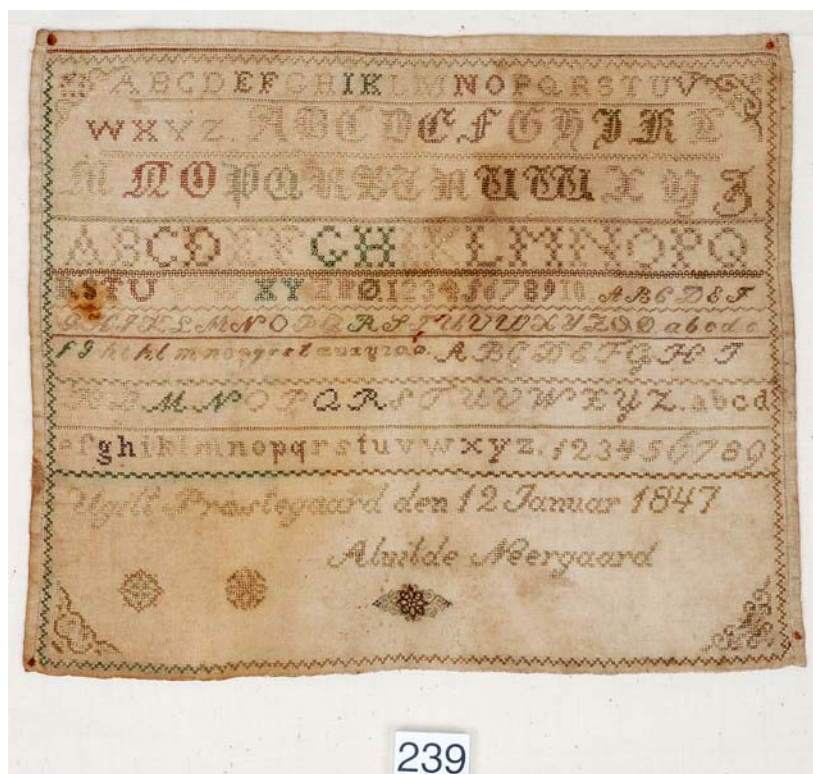 A B C D E F G H I K L M N O P Q R S T U V
W X Y Z . A B C D E F G H I K L
M N O P Q R S T U W X Y Z.
A B C D E F G H I K L M N O P Q
R S T U X Y Z Æ Ø. 1 2 3 4 5 6 7 8 9 10 . A B C D E F
G H I K L M N O P Q R S T U V W X Y Z Æ Ø a b c d e
f g h i k l m n o p q r s t u v x y z æ ø . A B C D E F G H I
K L M N O P Q R S T U V W X Y Z . a b c d
e f g h i k l m n o p q r s t u v w x y z . 1 2 3 4 5 6 7 8 9
Ugelt Præstegaard den 12 Januar 1847
Alvilde Neergaard
239